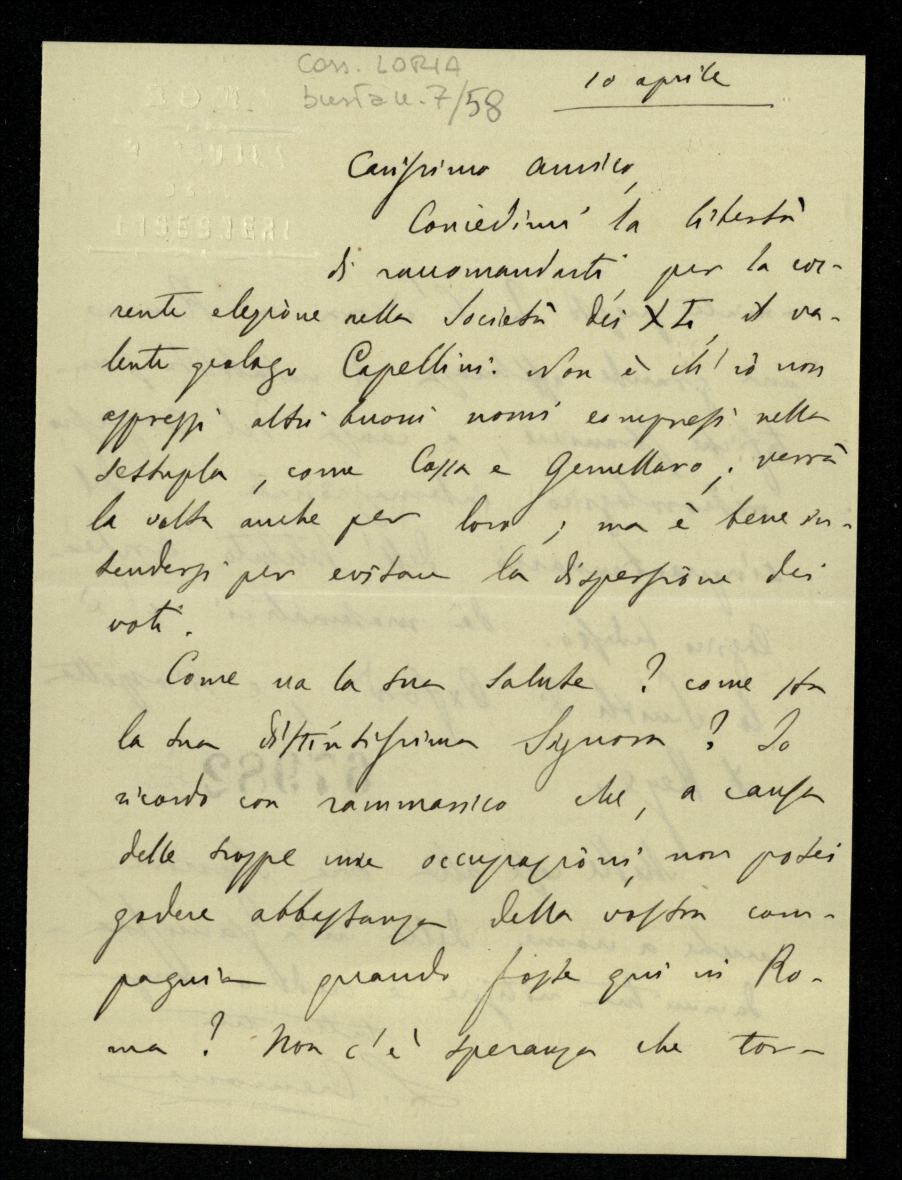 Corr. LORIA
busta n. 7/58
10 aprile
Carissimo amico,
Concedimi la libertà
di raccomandarti, per la cor-
rente elezione nella Società dei XL, il va-
lente geologo Capellini. Non è ch'io non
apprezzi altri buoni nomi compresi nella
sestupla, come Cossa e Gemellaro; verrà
la volta anche per loro; ma è bene in-
tendersi per evitare la dispersione dei
voti.
Come va la tua salute? come sta
la tua distintissima Signora? Io
ricordo con rammarico che, a causa
delle troppe mie occupazioni, non potei
godere abbastanza della vostra com-
pagnia quando foste qui in Ro-
ma? Non c'è speranza che tor-